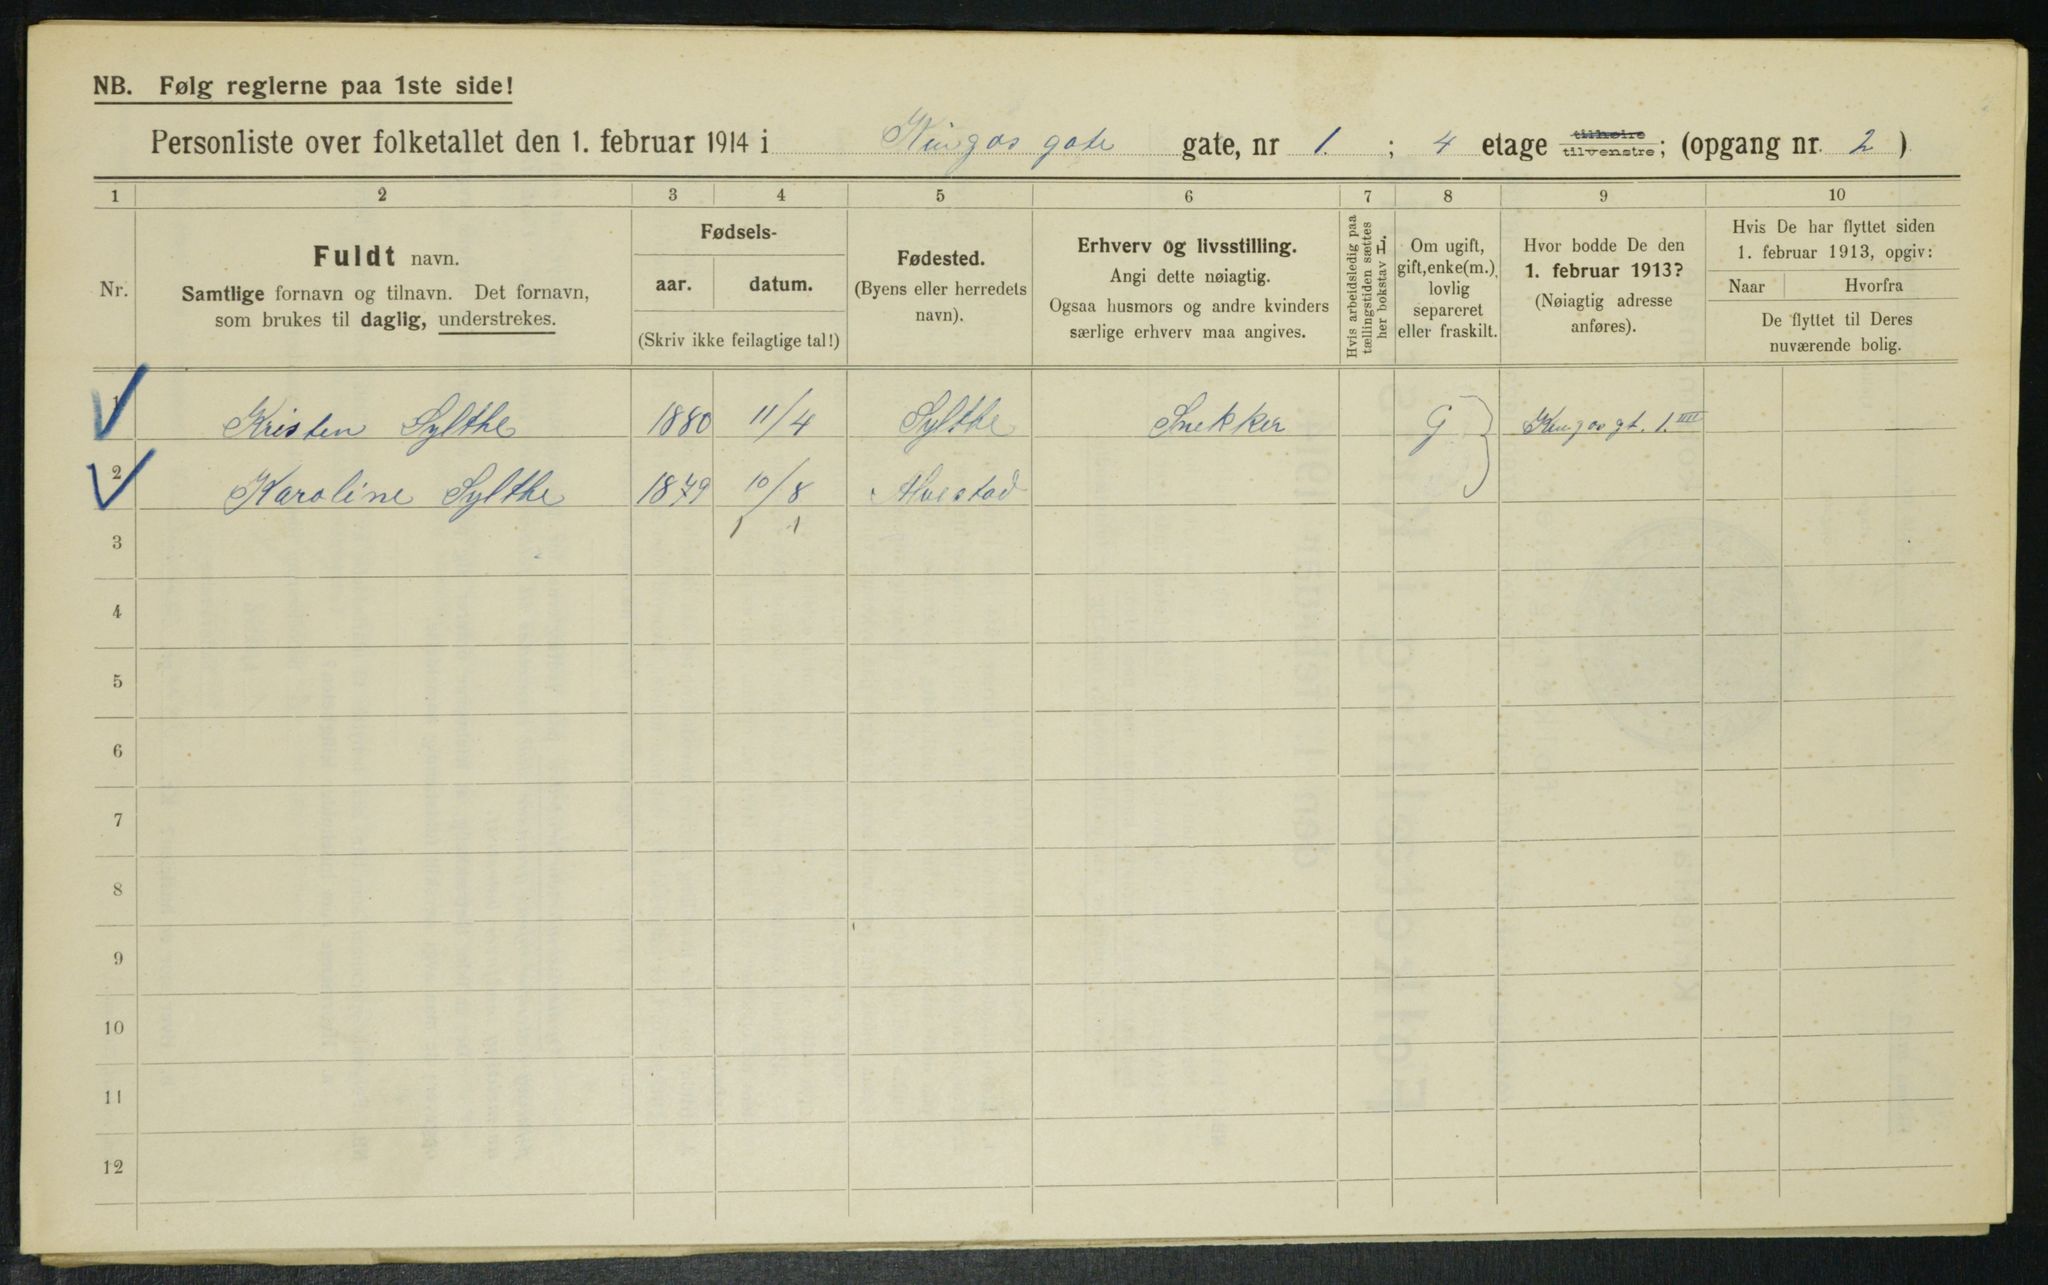 NB. Følg reglerne paa 1ste side!
Personliste over folketallet den 1. februar 1914 i Kingos gate gate, nr 1. ; 4 etage tilhøire tilvenstre; (opgang nr. 2 )
1 2 3 4 5 6 7 8 9 10
Nr.
Fuldt navn.
Samtlige fornavn og tilnavn. Det fornavn,
som brukes til daglig, understrekes.
Fødsels-
aar. datum.
(Skriv ikke feilagtige tal!)
Fødested.
(Byens eller herredets
navn).
Erhverv og livsstilling.
Angi dette nøiagtig.
Ogsaa husmors og andre kvinders
særlige erhverv maa angives.
Hvis arbeidsledig paa
tællingstiden sættes
her bokstav L.
Om ugift,
gift, enke(m.),
lovlig
separeret
eller fraskilt.
Hvor bodde De den
1. februar 1913?
(Nøiagtig adresse
anføres).
Hvis De har flyttet siden
1. februar 1913, opgiv:
Naar Hvorfra
De flyttet til Deres
nuværende bolig.
1 Kristen Sylthe 1880 11/4 Sylthe Snekker G Kingosgt. 1. IIII
2 Karoline Sylthe 1879 10/8
3
4
5
6
7
8
9
10
11
12